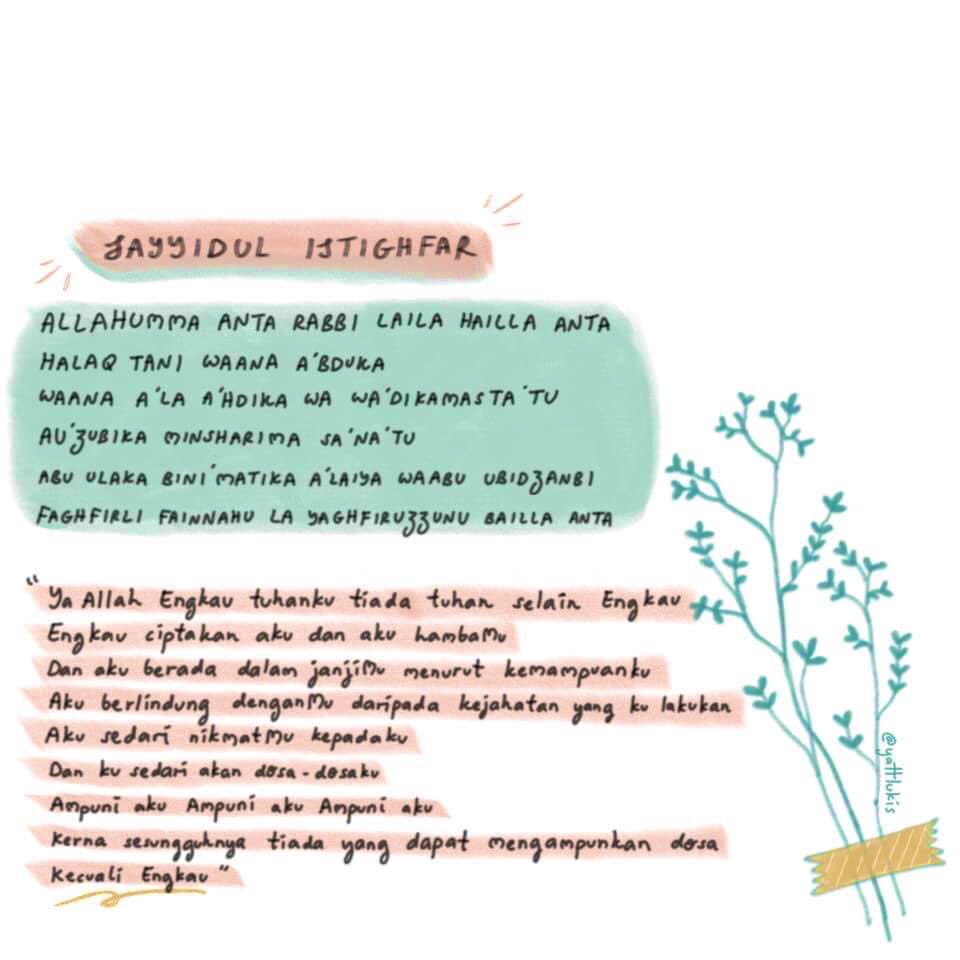 SAYYIDUL ISTIGHFAR
ALLAHUMMA ANTA RABBI LAILA HAILLA ANTA
HALAQ TANI WAANA A'BDUKA
WAANA A'LA A'HDIKA WA WA'DIKAMASTA'TU
AU'ZUBIKA MINSHARIMA SA'NA'TU
ABU ULAKA BINI'MATIKA A'LAIYA WAABU UBIDZANBI
FAGHFIRLI FAINNAHU LA YAGHFIRUZZUNU BAILLA ANTA
"Ya Allah Engkau tuhanku tiada tuhan selain Engkau
Engkau ciptakan aku dan aku hambaMu
Dan aku berada dalam janjiMu menurut kemampuanku
Aku berlindung denganMu daripada kejahatan yang ku lakukan
Aku sedari nikmatMu kepadaku
Dan ku sedari akan dosa-dosaku
Ampuni aku Ampuni aku Ampuni aku
Kerna sesungguhnya tiada yang dapat mengampunkan dosa
Kecuali Engkau"
@yattlukis